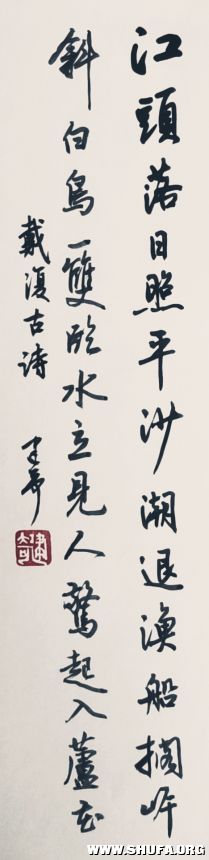 江頭落日照平沙潮退漁船擱岸
斜白鳥一雙臨水立見人驚起入蘆花
戴復古詩
建奇
WWW.SHUFA.ORG